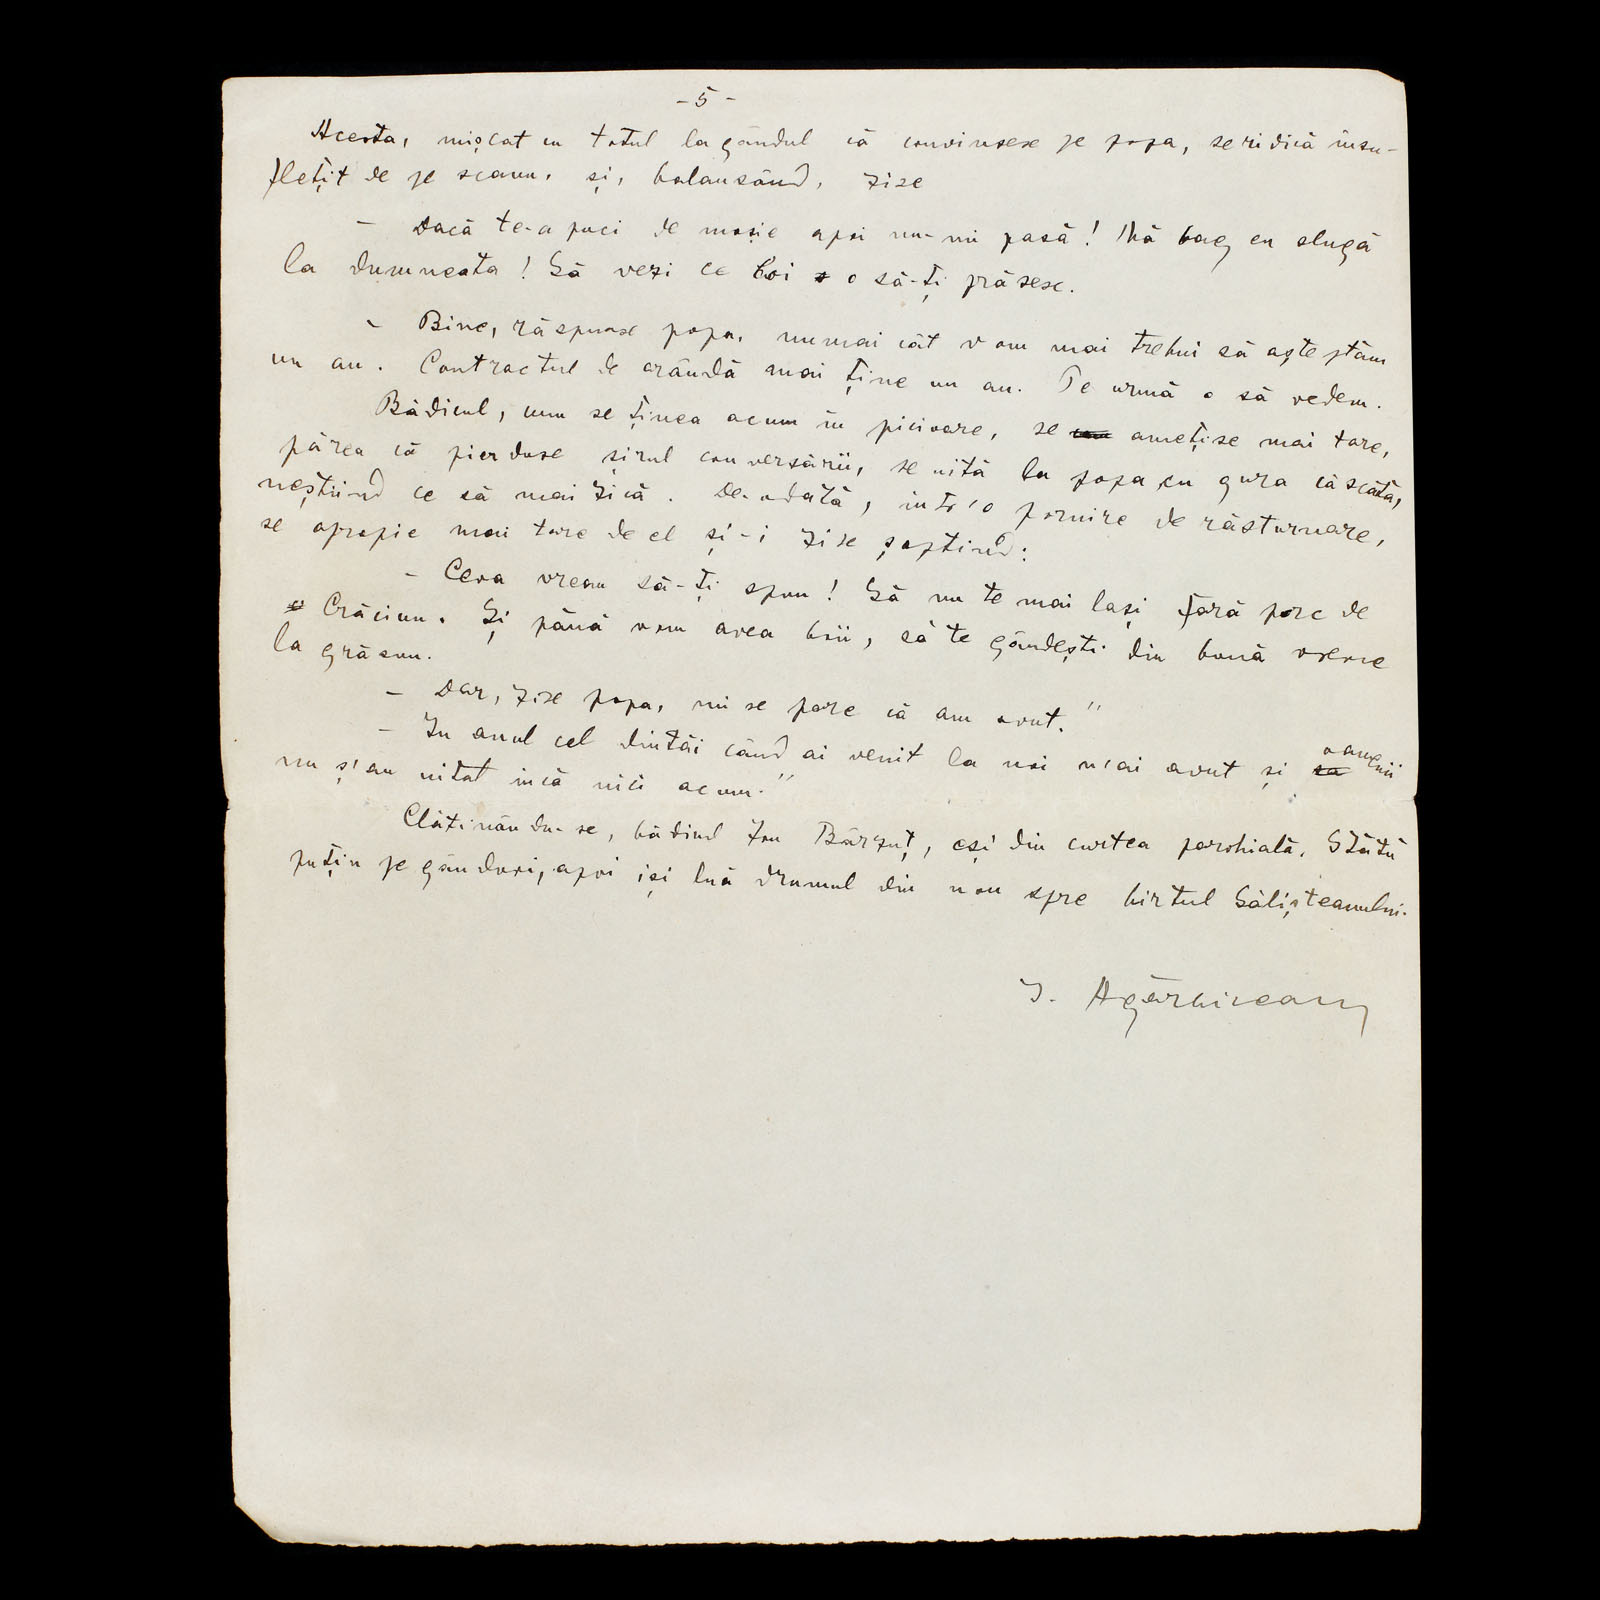 - 5 -
Acesta, mișcat cu totul la gândul că convinsese pe popa, se ridică însu-
flețit de pe scaun, și, balansând, zise
- Dacă te-apuci de moșie apoi nu-mi pasă! Mă bag eu slugă
la dumneata! Să vezi ce boi o să-ți prăsesc.
- Bine, răspunse popa, numai cât vom mai trebui să așteptăm
un an. Contractul de arândă mai ține un an. Pe urmă o să vedem.
Bădicul, cum se ținea acum în picioare, se amețise mai tare,
părea că pierduse șirul conversării, se uită la popa cu gura căscată,
neștiind ce să mai zică. De-odată, într'o pornire de răsturnare,
se apropie mai tare de el și-i zise șoptind:
- Ceva vreau să-ți spun! Să nu te mai lași fără porc de
Crăciun. Și până vom avea boii, să te gândești din bună vreme
la grăsun.
- Dar, zise popa, mi se pare că am avut."
- In anul cel dintâi când ai venit la noi n'ai avut și oamenii
nu ș'au uitat încă nici acum."
Clătinându-se, bădicul Ion Bârzuț, eși din curtea parohială. Stătù
puțin pe gânduri, apoi iși luă drumul din nou spre birtul Sălișteanului.
I. Agârbiceanu